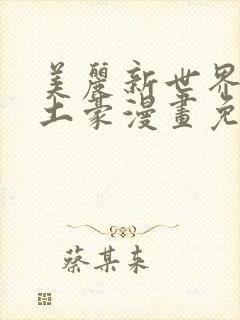 美麗新世界
土豪漫畫免
蔡某来